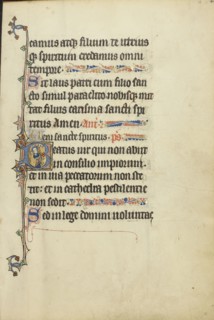 eamus atq; filium te utrius
q; spiritum credamus omni
tempore.
Sit laus patri cum filio san
cto simul paraclito nobisq; mit
tat filius carisma sancti spi
ritus Amen. Ant.
eni sancte spiritus. ps.
Beatus uir qui non abiit
in consilio impiorum:
et in uia peccatorum non ste
tit: et in cathedra pestilentie
non sedit.
Sed in lege domini uoluntas